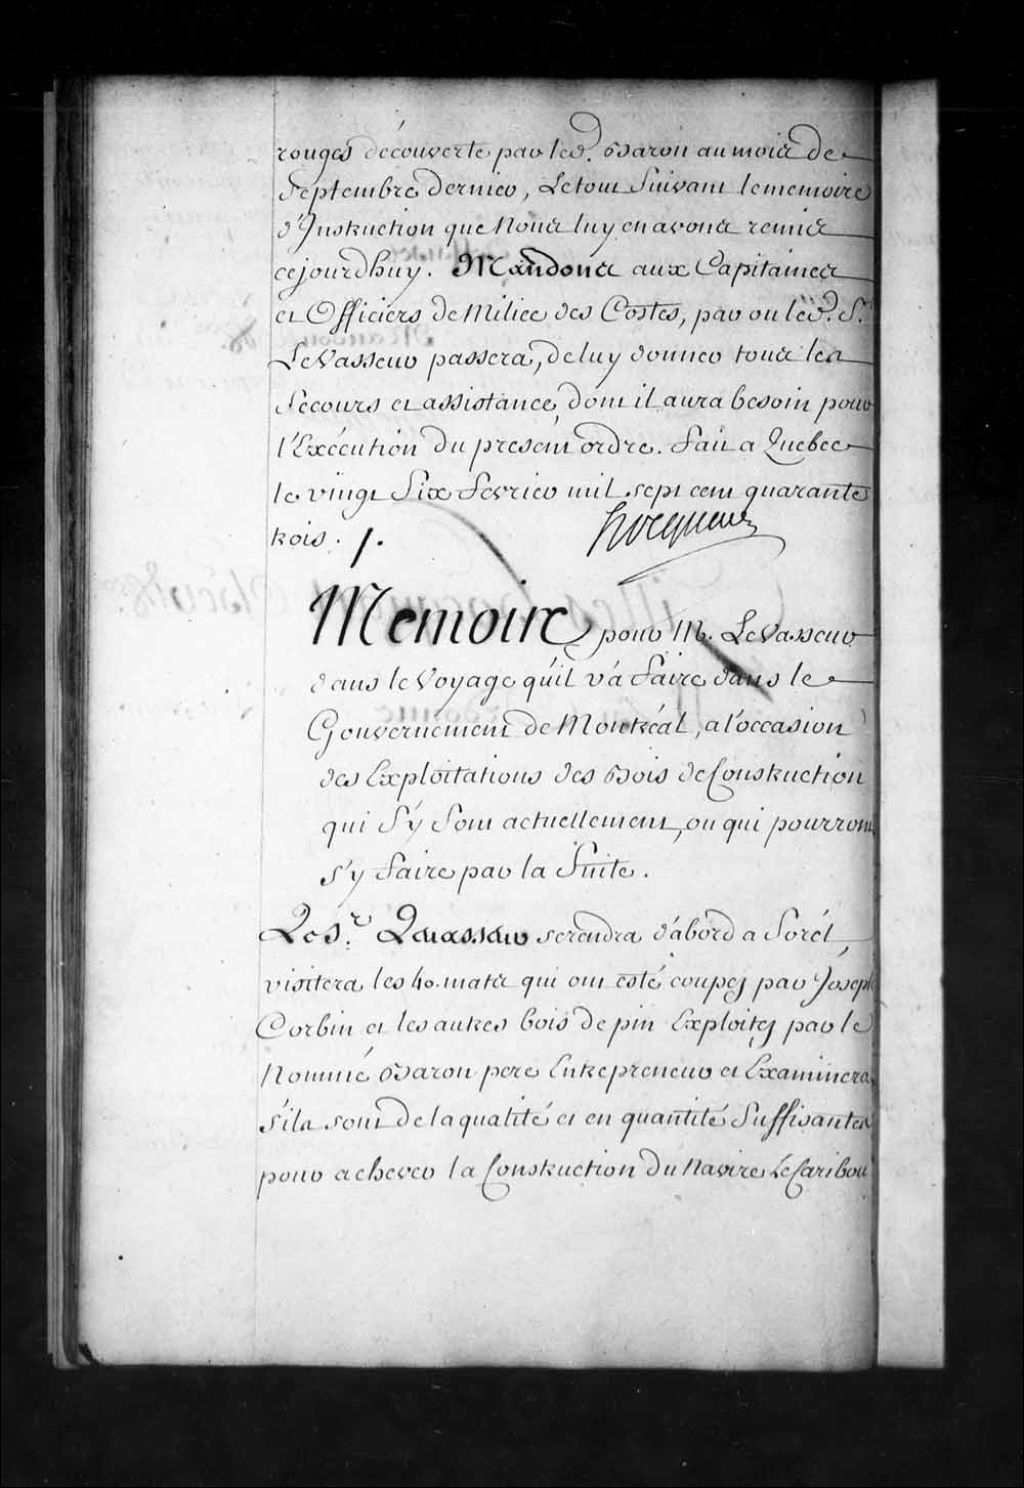 rouges découverte par led. Baron au mois de
Septembre dernier, Le tout Suivant le memoire
d'Instruction que Nous luy en avons remis
cejourdhuy. Mandons aux Capitaines
et Officiers de Milice des Costes, par ou led. S.r
LeVasseur passera, de luy donner tous les
Secours et assistance dont il aura besoin pour
l'Exécution du present ordre. Fait a Quebec
le vingt Six Fevrier mil sept cent quarante
trois. /.
Hocquart
Memoire pour M. LeVasseur
dans le Voyage qu'il va faire dans le
Gouvernement de Montréal, a l'occasion
des Exploitations des Bois de Construction
qui S'y Font actuellement, ou qui pourront
s'y Faire par la Suite.
Le S.r Levasseur se rendra d'abord a Sorél,
visitera les 40. mats qui ont esté coupez par Joseph
Corbin et les autres bois de pin Exploitez par le
Nommé Baron pere Entrepreneur et Examinera,
s'ils sont de la qualité et en quantité Suffisantes
pour achever la Construction du Navire Le Caribou